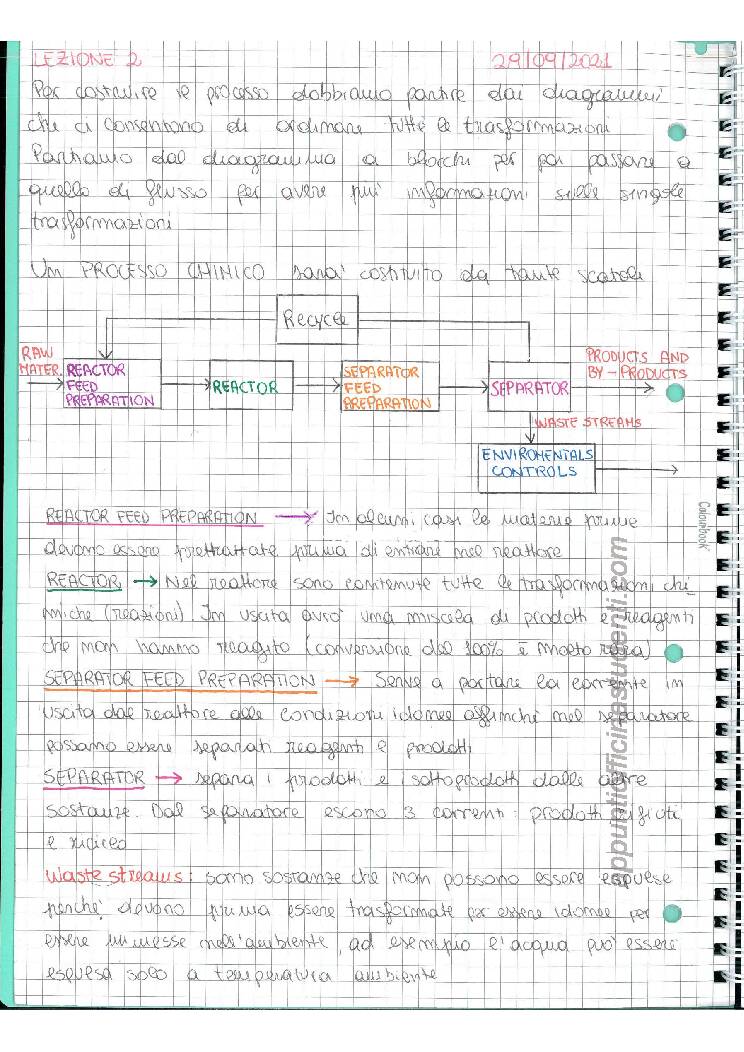 LEZIONE 2 29/09/2021
Per costruire il processo dobbiamo partire dai diagrammi
che ci consentono di ordinare tutte le trasformazioni
Partiamo dal diagramma a blocchi per poi passare a
quello di flusso per avere più informazioni sulle singole
trasformazioni
Un PROCESSO CHIMICO sarà costituito da tante scatole
Recycle
RAW
MATER.
REACTOR
FEED
PREPARATION
REACTOR
SEPARATOR
FEED
PREPARATION
SEPARATOR
PRODUCTS AND
BY-PRODUCTS
WASTE STREAMS
ENVIROMENTALS
CONTROLS
REACTOR FEED PREPARATION → In alcuni casi le materie prime
devono essere pretrattate prima di entrare nel reattore
REACTOR → Nel reattore sono contenute tutte le trasformazioni chi
miche (reazioni). In uscita avrò una miscela di prodotti e reagenti
che non hanno reagito (conversione del 100% è molto rara)
SEPARATOR FEED PREPARATION → Serve a portare la corrente in
uscita dal reattore alle condizioni idonee affinché nel separatore
possano essere separati reagenti e prodotti
SEPARATOR → separa i prodotti e i sottoprodotti dalle altre
sostanze. Dal separatore escono 3 correnti: prodotti, rifiuti
e riciclo
Waste streams: sono sostanze che non possono essere espulse
perché devono prima essere trasformate per essere idonee per
essere immesse nell'ambiente, ad esempio l'acqua può essere
espulsa solo a temperatura ambiente
Colourbook
appuntiofficinastudenti.com